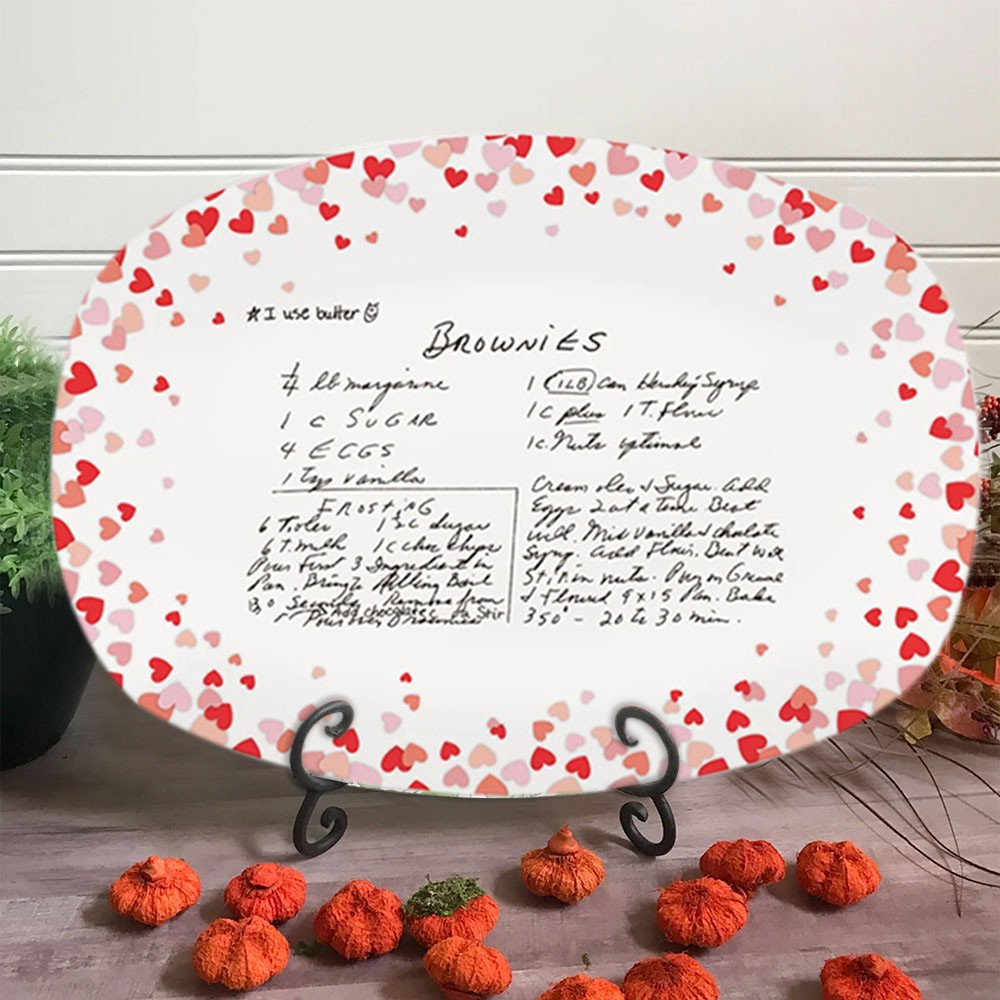 ☆I use butter ☺
BROWNIES
1/4 lb margarine
1 c SUGAR
4 EGGS
1 Tsp vanilla
1 (1LB) can Hershey Syrup
1 c plus 1 T. Flour
1 c. Nuts optional
Cream oleo & Sugar. Add
Eggs 2 at a Time. Beat
well. Mix Vanilla & chocolate
Syrup. Add Flour. Beat well
Stir in nuts. Pour in Greased
& Floured 9x15 Pan. Bake
350° - 20 to 30 min.
FROSTING
6 T. oleo 1 1/2 c Sugar
6 T. milk 1 c choc chips
Pour First 3 Ingredient in
Pan. Bring to Rolling Boil
30 Seconds. Remove from
Add chocolate Stir
Pour over Brownies